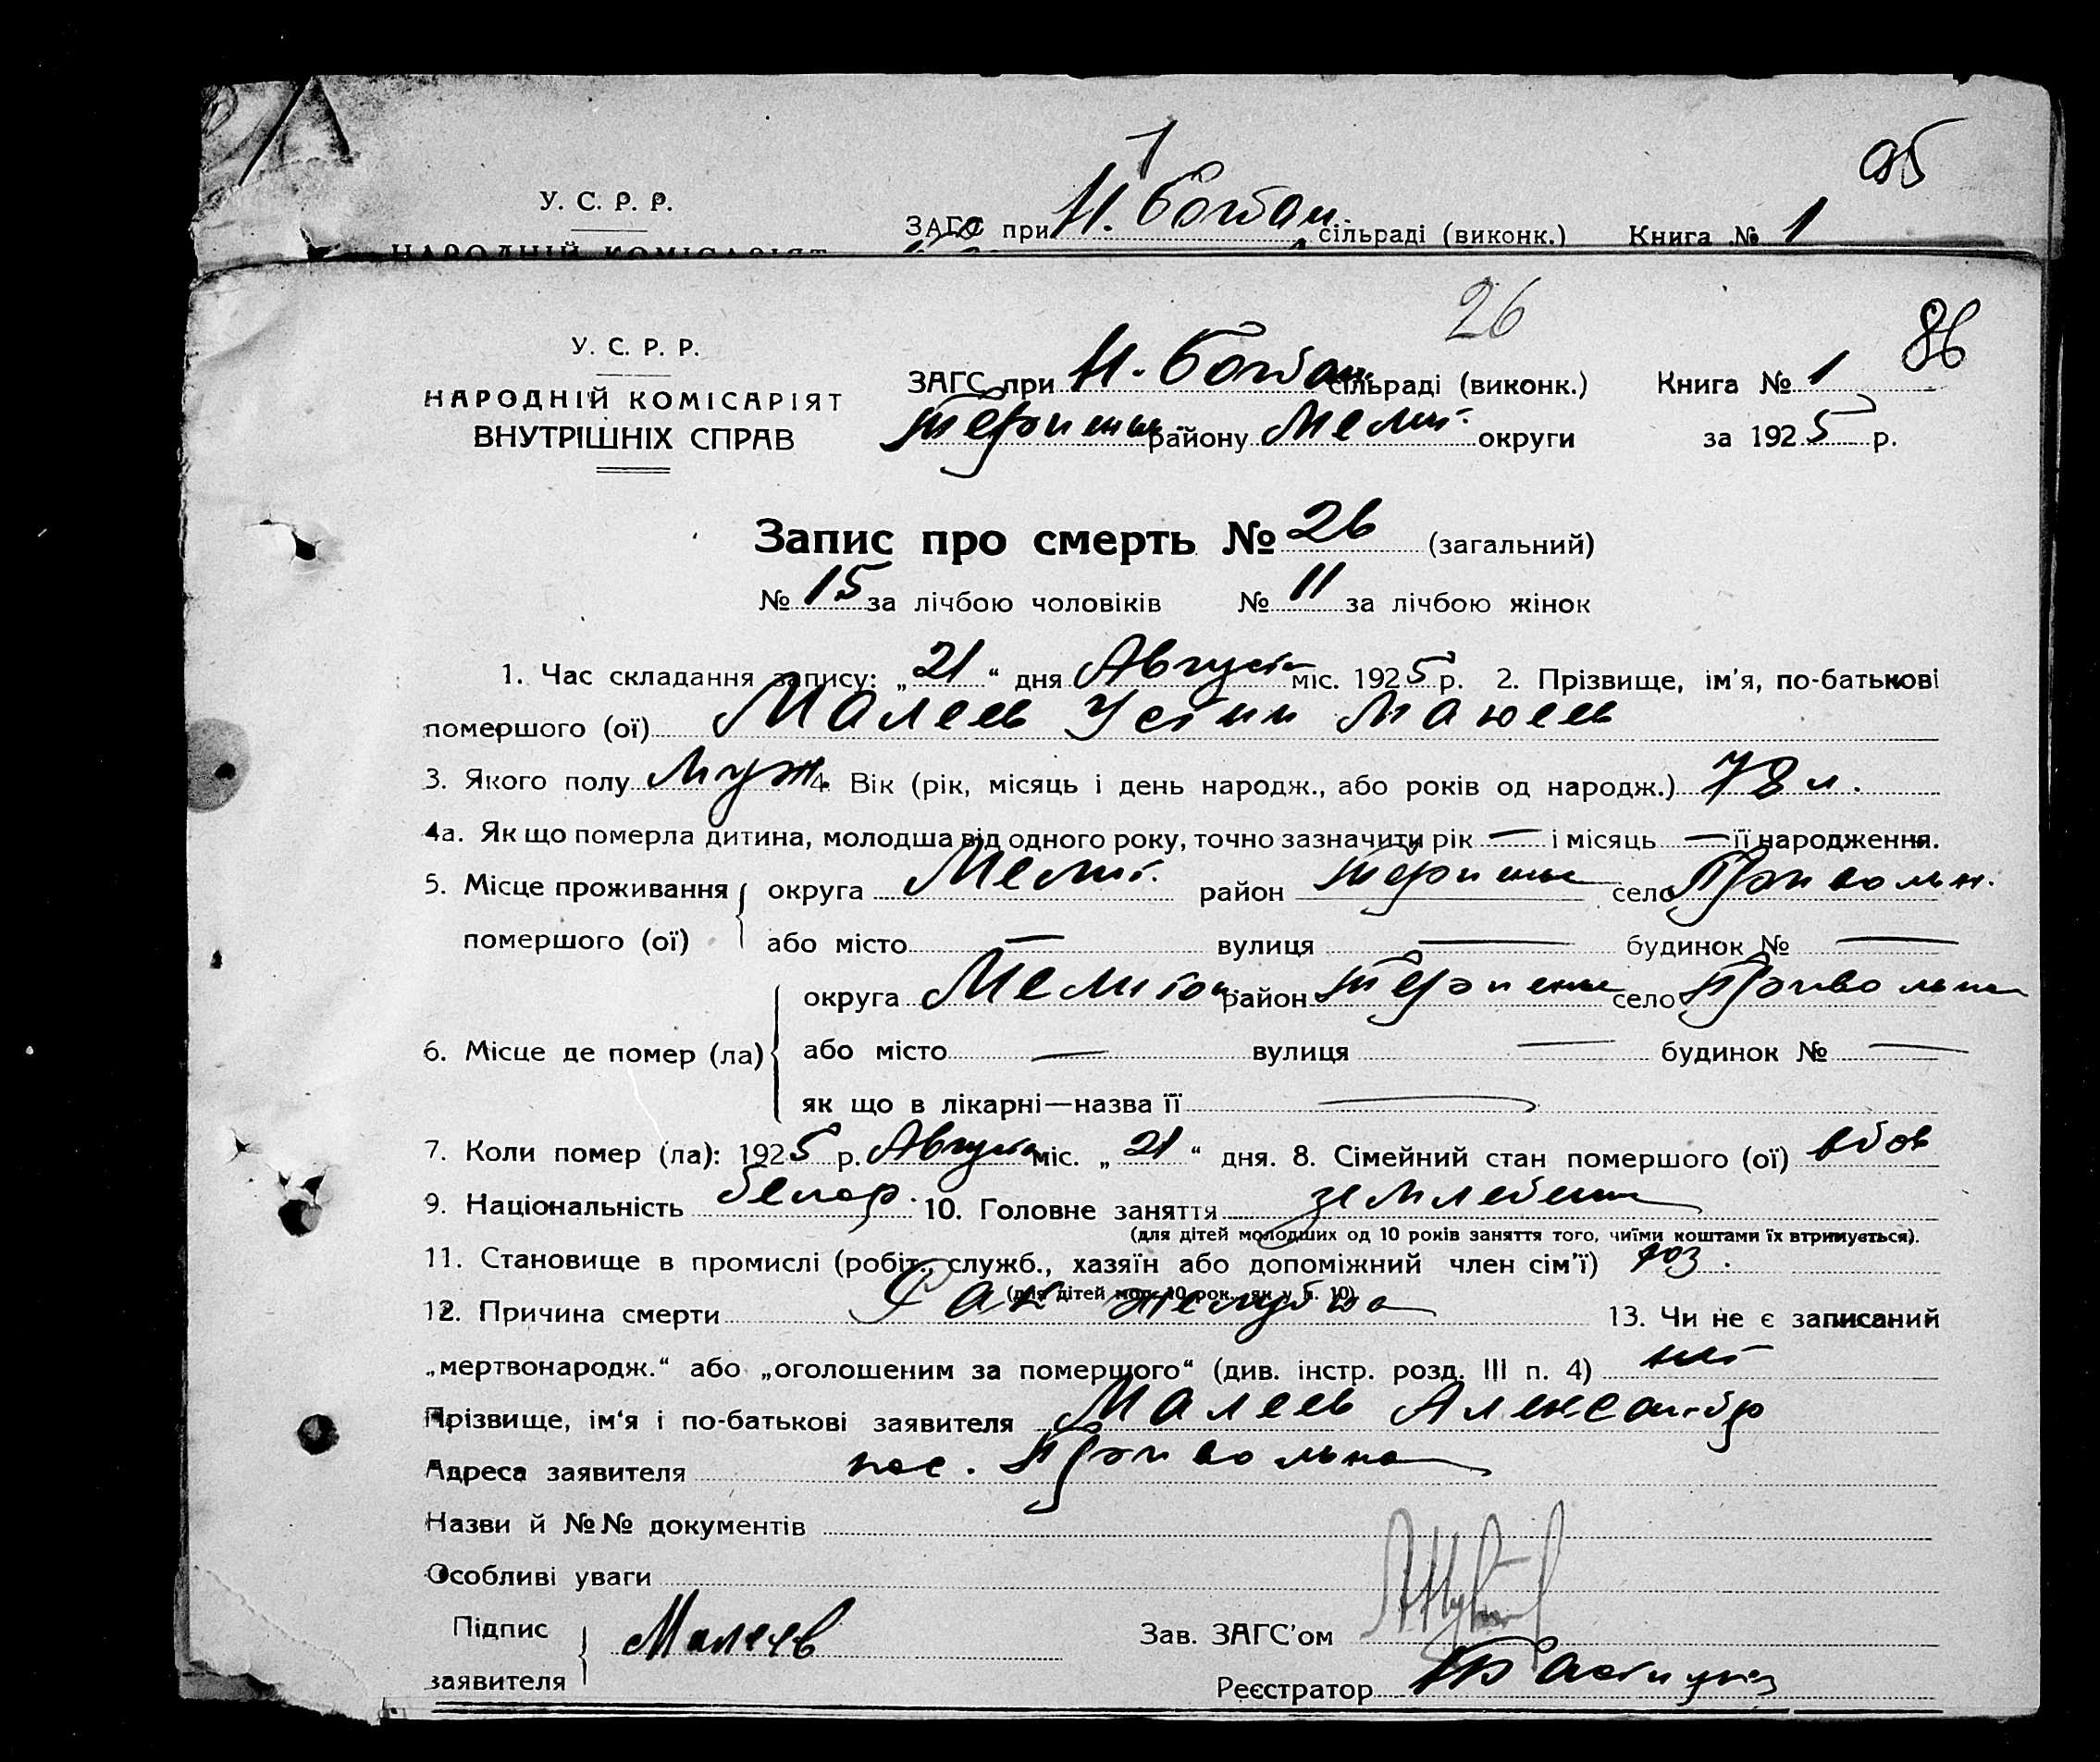 95
1
У. С. Р. Р.
ЗАГС при Н. Богдан. сільраді (виконк.) Книга № 1
НАРОДНІЙ КОМІСАРІЯТ
26
86
У. С. Р. Р.
НАРОДНІЙ КОМІСАРІЯТ
ВНУТРІШНІХ СПРАВ
ЗАГС при Н. Богдан. сільраді (виконк.) Книга № 1
району Мелит. округи за 1925 р.
Запис про смерть № 26 (загальний)
№ 15 за лічбою чоловіків № 11 за лічбою жінок
1. Час складання запису: „21“ дня Августа міс. 1925 р. 2. Прізвище, ім'я, по-батькові
помершого (ої) Малеев Устин
3. Якого полу Муж. 4. Вік (рік, місяць і день народж., або років од народж.) 78 л.
4а. Як що померла дитина, молодша від одного року, точно зазначити рік — і місяць — її народження.
5. Місце проживання помершого (ої) округа Мелит. район село Привольн.
або місто — вулиця — будинок № —
6. Місце де помер (ла) округа Мелитоп. район село Привольна
або місто — вулиця — будинок № —
як що в лікарні—назва її —
7. Коли помер (ла): 1925 р. Августа міс. „21“ дня. 8. Сімейний стан помершого (ої) вдов
9. Національність 10. Головне заняття
(для дітей молодших од 10 років заняття того, чиїми коштами їх втримується).
11. Становище в промислі (робіт., служб., хазяїн або допоміжний член сім'ї) хоз.
(для дітей мол. 10 рок. як у п. 10)
12. Причина смерти Рак желудка 13. Чи не є записаний
„мертвонародж.“ або „оголошеним за помершого“ (див. інстр. розд. III п. 4) нет
Прізвище, ім'я і по-батькові заявителя Малеев Александр
Адреса заявителя пос. Привольна
Назви й №№ документів
Особливі уваги
Підпис заявителя Малеев
Зав. ЗАГС'ом
Реєстратор